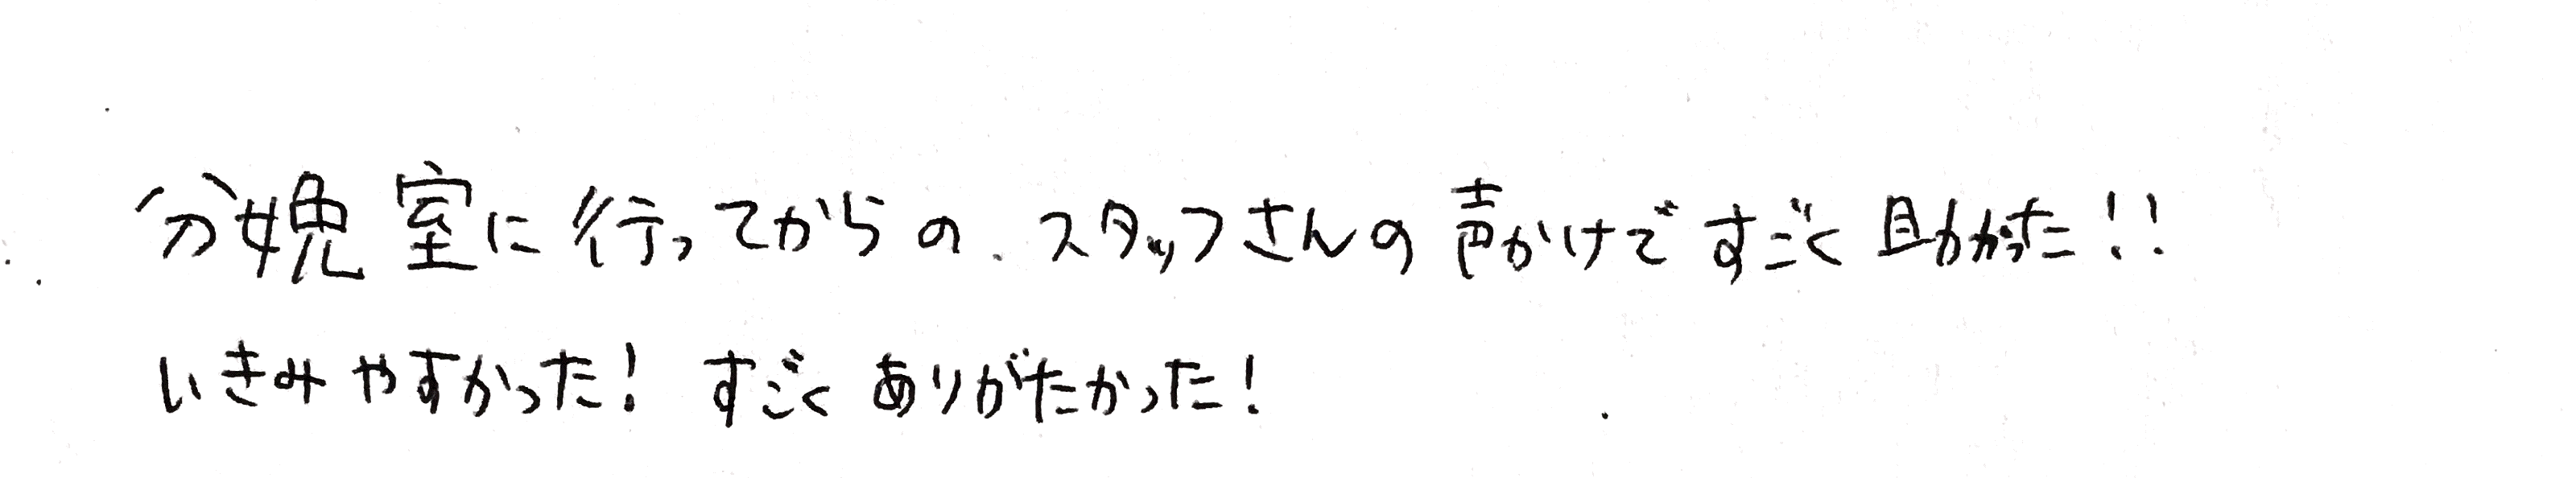 分娩室に行ってからの、スタッフさんの声かけですごく助かった!!
いきみやすかった! すごくありがたかった!